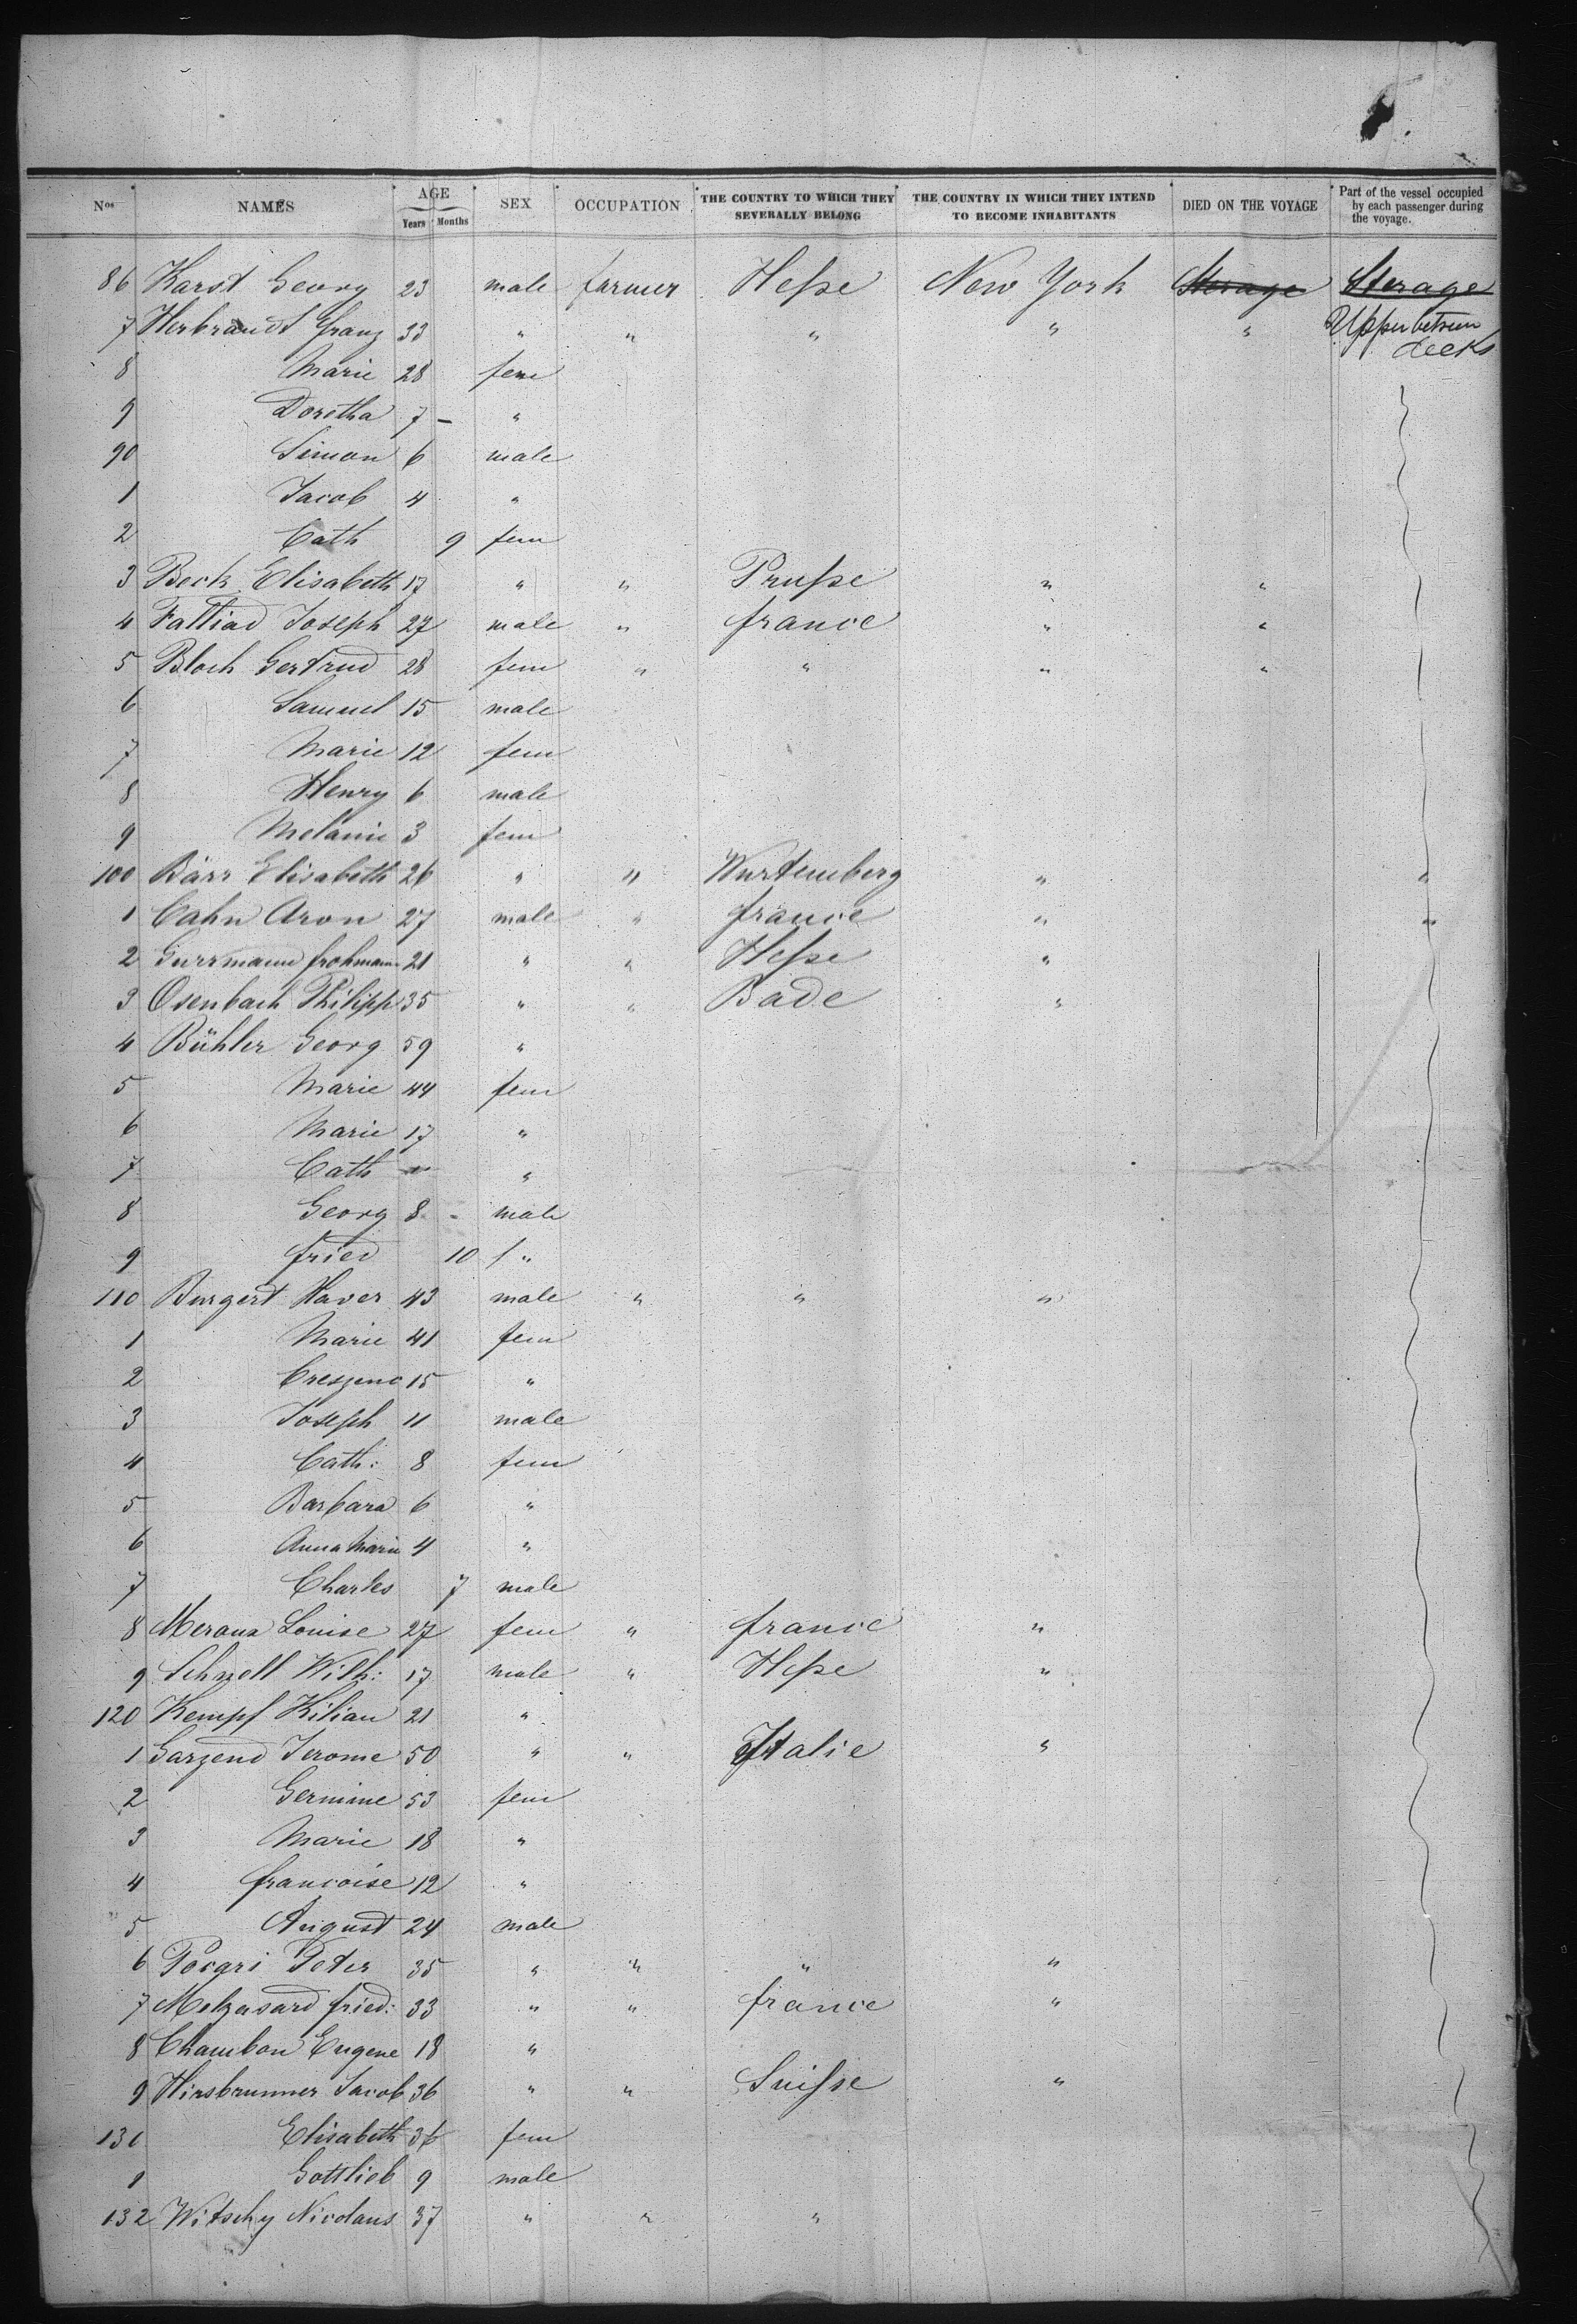 Nos NAMES AGE Years Months SEX OCCUPATION THE COUNTRY TO WHICH THEY SEVERALLY BELONG THE COUNTRY IN WHICH THEY INTEND TO BECOME INHABITANTS DIED ON THE VOYAGE Part of the vessel occupied by each passenger during the voyage.
86 Karst Georg 23 male farmer Hesse New York Sterage Sterage
7 Herbrandt Franz 33 " " " " " Upper betwen decks
8 Marie 28 fem
9 Doretha 7 – "
90 Simon 6 male
1 Jacob 4 "
2 Cath 9 fem
3 Beck Elisabeth 17 " " Prusse " "
4 Fattiad Joseph 27 male " france " "
5 Bloch Gertrud 28 fem " " " "
6 Samuel 15 male
7 Marie 12 fem
8 Henry 6 male
9 Melanie 3 fem
100 Bärr Elisabeth 26 " " Wurtemberg " "
1 Cahn Aron 27 male " france " "
2 frohmann 21 " " Hesse "
3 Osenbach Philipp 35 " " Bade "
4 Bühler Georg 59 "
5 Marie 44 fem
6 Marie 17 "
7 Cath "
8 Georg 8 - male
9 fried 10 "
110 Burgert Xaver 43 male " " "
1 Marie 41 fem
2 Creszenc 15 "
3 Joseph 11 male
4 Cath: 8 fem
5 Barbara 6 "
6 Anna Marie 4 "
7 Charles 7 male
8 Louise 27 fem " france "
9 Schnell Wilh: 17 male " Hesse "
120 Kempf Kilian 21 "
1 Garzend Jerome 50 " " Italie "
2 Germine 53 fem
3 Marie 18 "
4 francoise 12 "
5 August 24 male
6 Pocari Peter 35 " " " "
7 fried: 33 " " france "
8 Chambon Eugene 18 "
9 Hirsbrunner Jacob 36 " " Suisse "
130 Elisabeth 36 fem
1 Gottlieb 9 male
132 Witschy Nicolaus 37 " " "